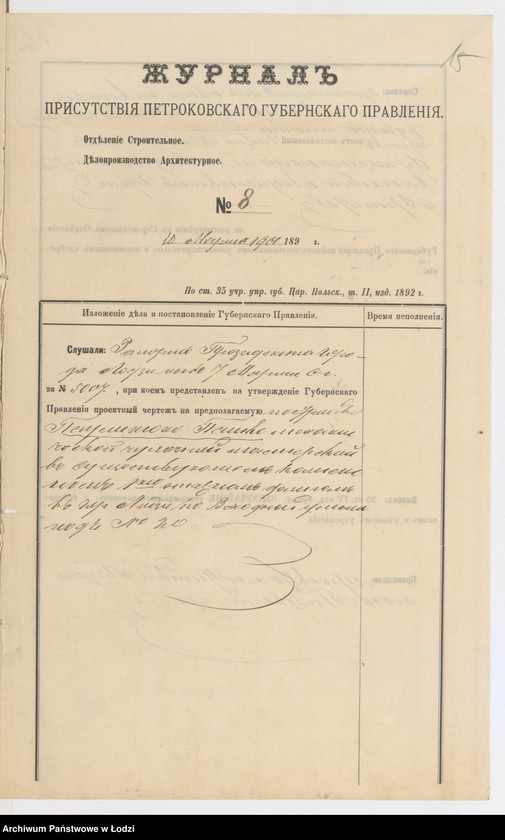 15
ЖУРНАЛЪ
ПРИСУТСТВІЯ ПЕТРОКОВСКАГО ГУБЕРНСКАГО ПРАВЛЕНІЯ.
Отдѣленіе Строительное.
Дѣлопроизводство Архитектурное.
№ 8
10 1901 189 г.
По ст. 35 учр. упр. губ. Цар. Польск., т. II, изд. 1892 г.
Изложеніе дѣла и постановленіе Губернскаго Правленія.
Время исполненія.
Слушали: Рапортъ Президента горо-
да Лодзи отъ 7 Марта с.г.
за № 5007, при коемъ представленъ на утвержденіе Губернскаго
Правленія проектный чертежъ на предполагаемую постройку
чулочной мастерской
въ существующемъ
этажномъ
въ гор. Лодзи, по Входной улицѣ
подъ № 20
Archiwum Państwowe w Łodzi